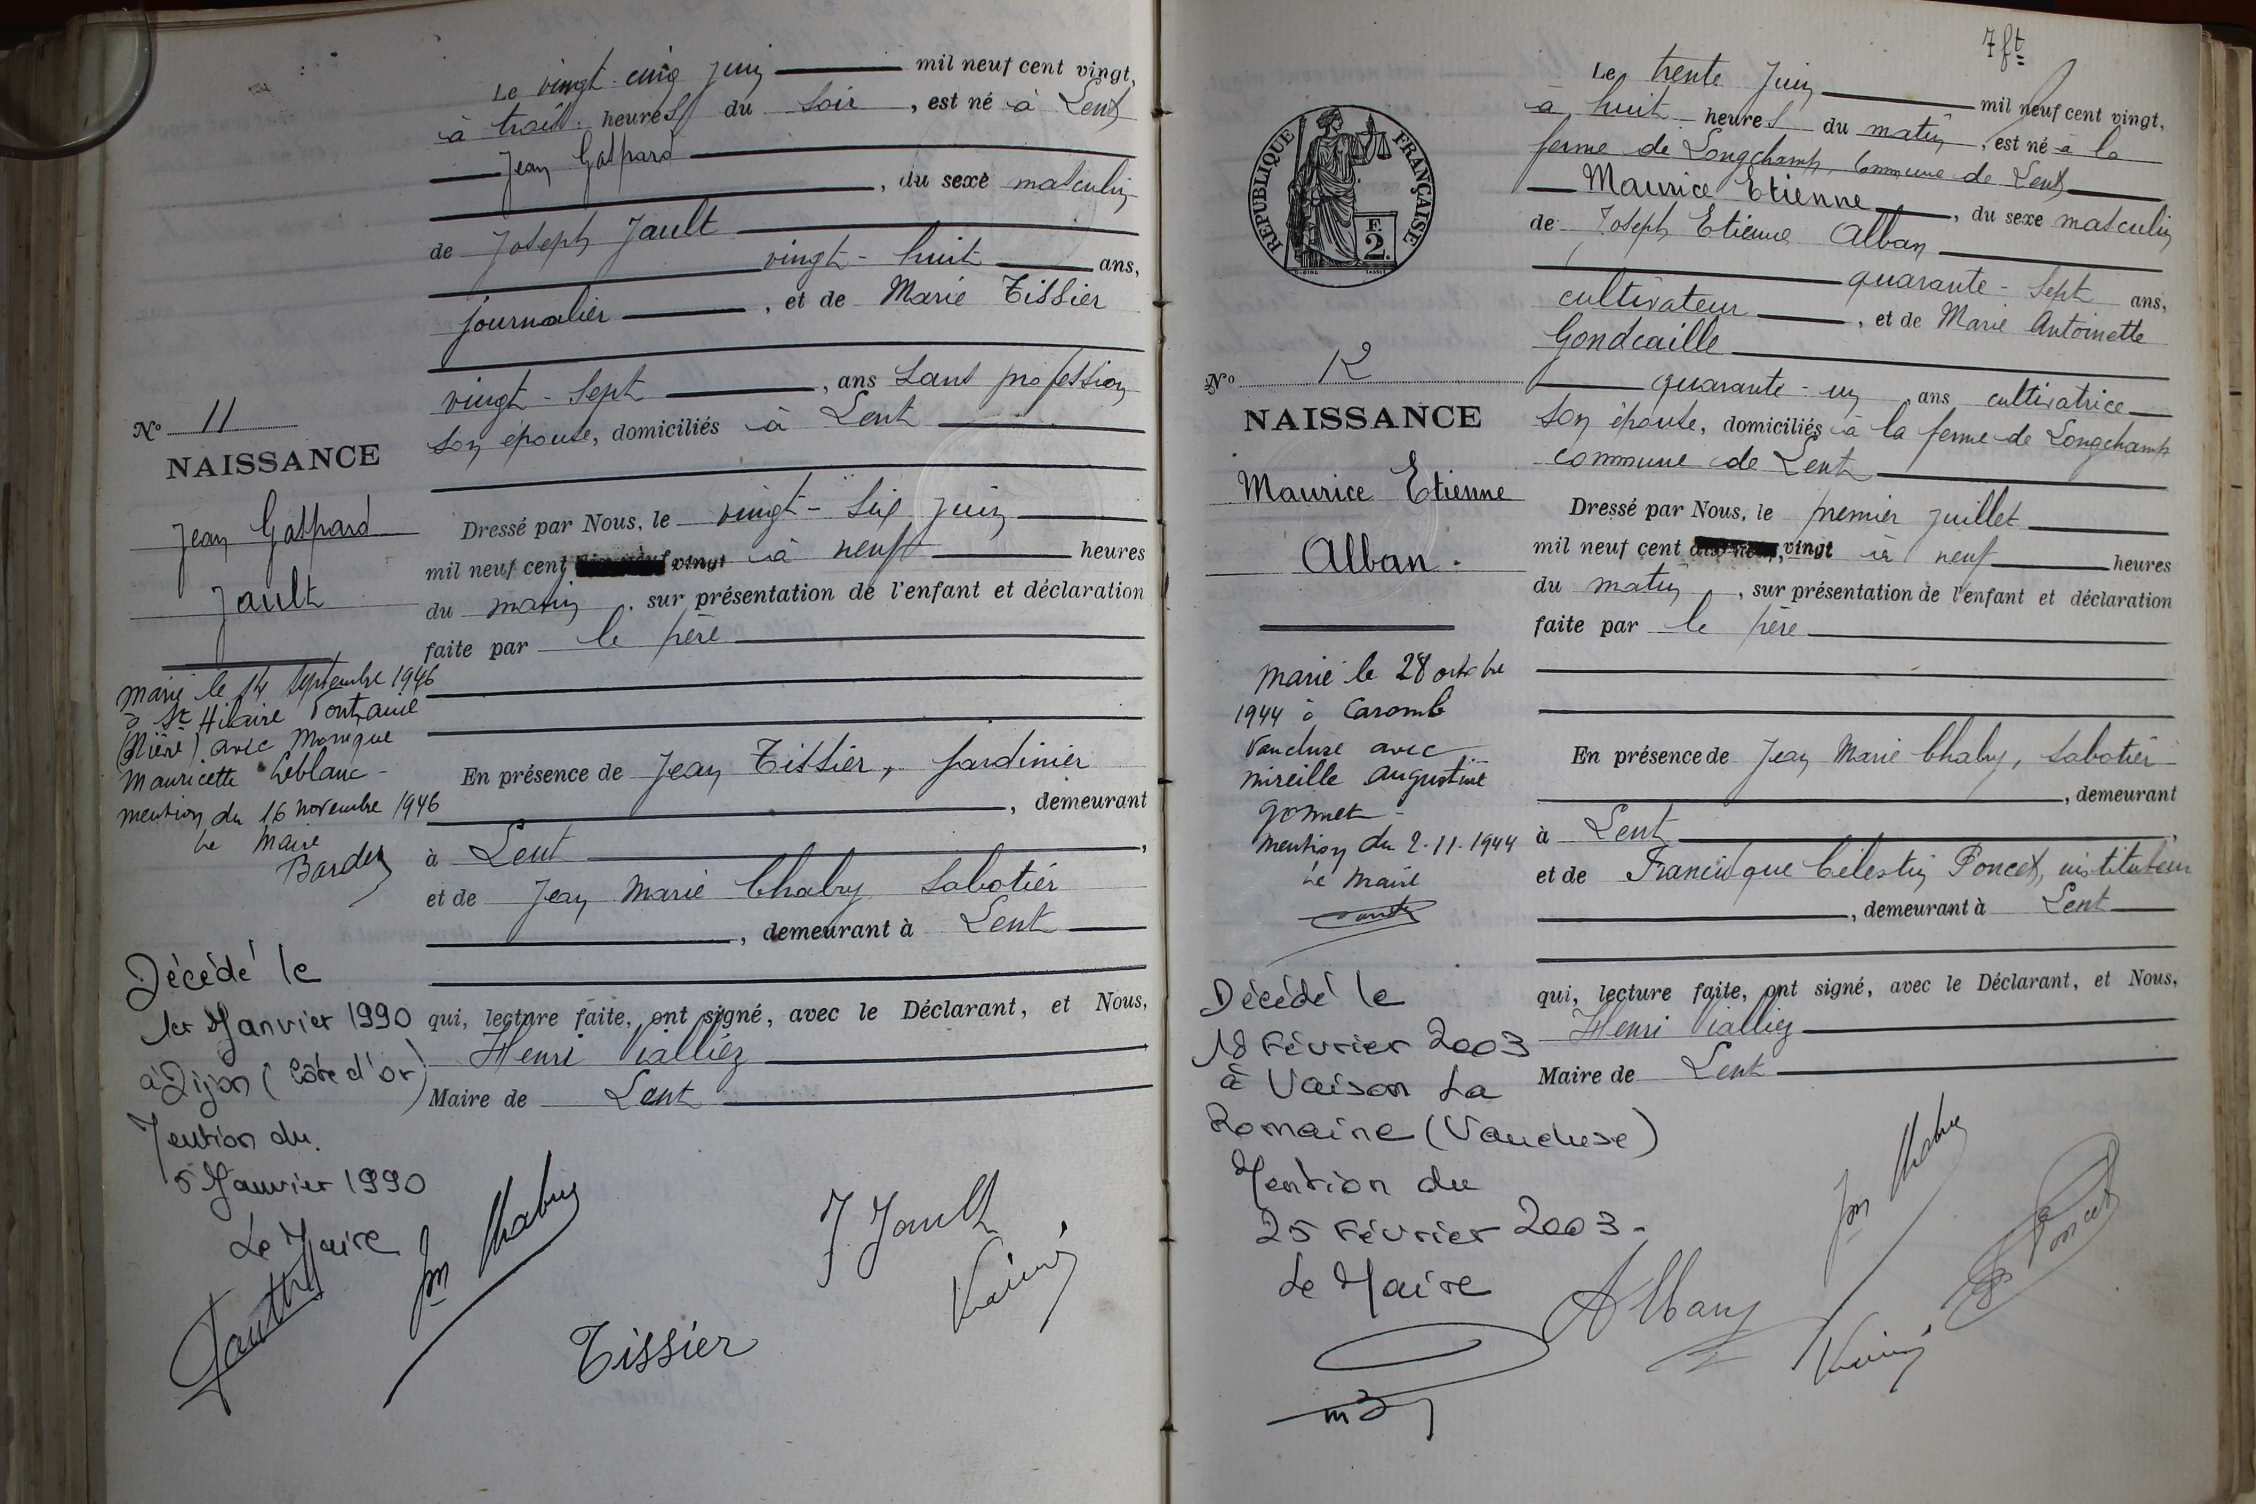 Le vingt-cinq Juin mil neuf cent vingt,
à trois heures du soir, est né à Lent
Jean Gaspard
, du sexe masculin
de Joseph Jault
vingt-huit ans,
journalier, et de Marie Tissier
vingt-sept, ans sans profession
son épouse, domiciliés à Lent
Nº 11
NAISSANCE
Jean Gaspard
Jault
Dressé par Nous, le vingt-six juin
mil neuf cent vingt à neuf heures
du matin, sur présentation de l'enfant et déclaration
faite par le père
En présence de Jean Tissier, Jardinier
, demeurant
à Lent,
et de Jean Marie Chabry Sabotier
, demeurant à Lent
qui, lecture faite, ont signé, avec le Déclarant, et Nous,
Henri Vialliez
Maire de Lent
Marié le 14 septembre 1946
à St Hilaire Fontaine
(Nièvre) avec Monique
Mauricette Leblanc -
mention du 16 novembre 1946
Le Maire
Décédé le
1er Janvier 1990
à Dijon (Côte d'or)
Mention du
5 Janvier 1990
Le Maire
Jm Chabry
J. Jault
Tissier
7 ft
RÉPUBLIQUE FRANÇAISE
F.
2.
Le trente Juin mil neuf cent vingt,
à huit heures du matin, est né à la
ferme de Longchamp, Commune de Lent
Maurice Etienne, du sexe masculin
de Joseph Etienne Alban
quarante-sept ans,
cultivateur, et de Marie Antoinette
Gondcaille
quarante-un ans cultivatrice
son épouse, domiciliés à la ferme de Longchamp
commune de Lent
Nº 12
NAISSANCE
Maurice Etienne
Alban.
Dressé par Nous, le premier juillet
mil neuf cent vingt à neuf heures
du matin, sur présentation de l'enfant et déclaration
faite par le père
En présence de Jean Marie Chabry, Sabotier
, demeurant
à Lent,
et de Francisque Célestin Poncet, instituteur
, demeurant à Lent
qui, lecture faite, ont signé, avec le Déclarant, et Nous,
Henri Vialliez
Maire de Lent
Marié le 28 octobre
1944 à Caromb
Vaucluse avec
Mireille Augustine
Gonnet -
mention du 2-11-1944
Le Maire
Décédé le
18 Février 2003
à Vaison La
Romaine (Vaucluse)
Mention du
25 Février 2003 -
Le Maire
Alban
Jm Chabry
Poncet